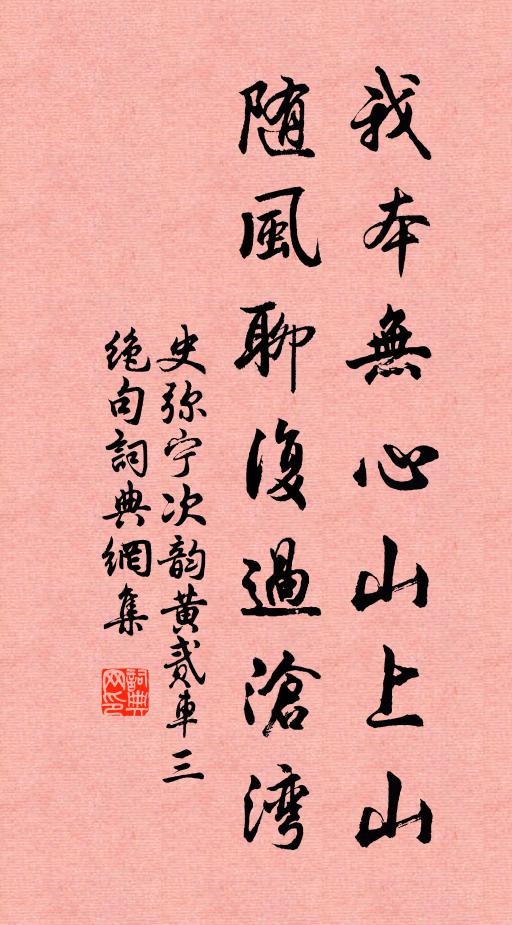 我本無心山上山
随風聊復過滄湾
史弥宁次韵黄貳車三
絶句詞典網集
詞典
网印